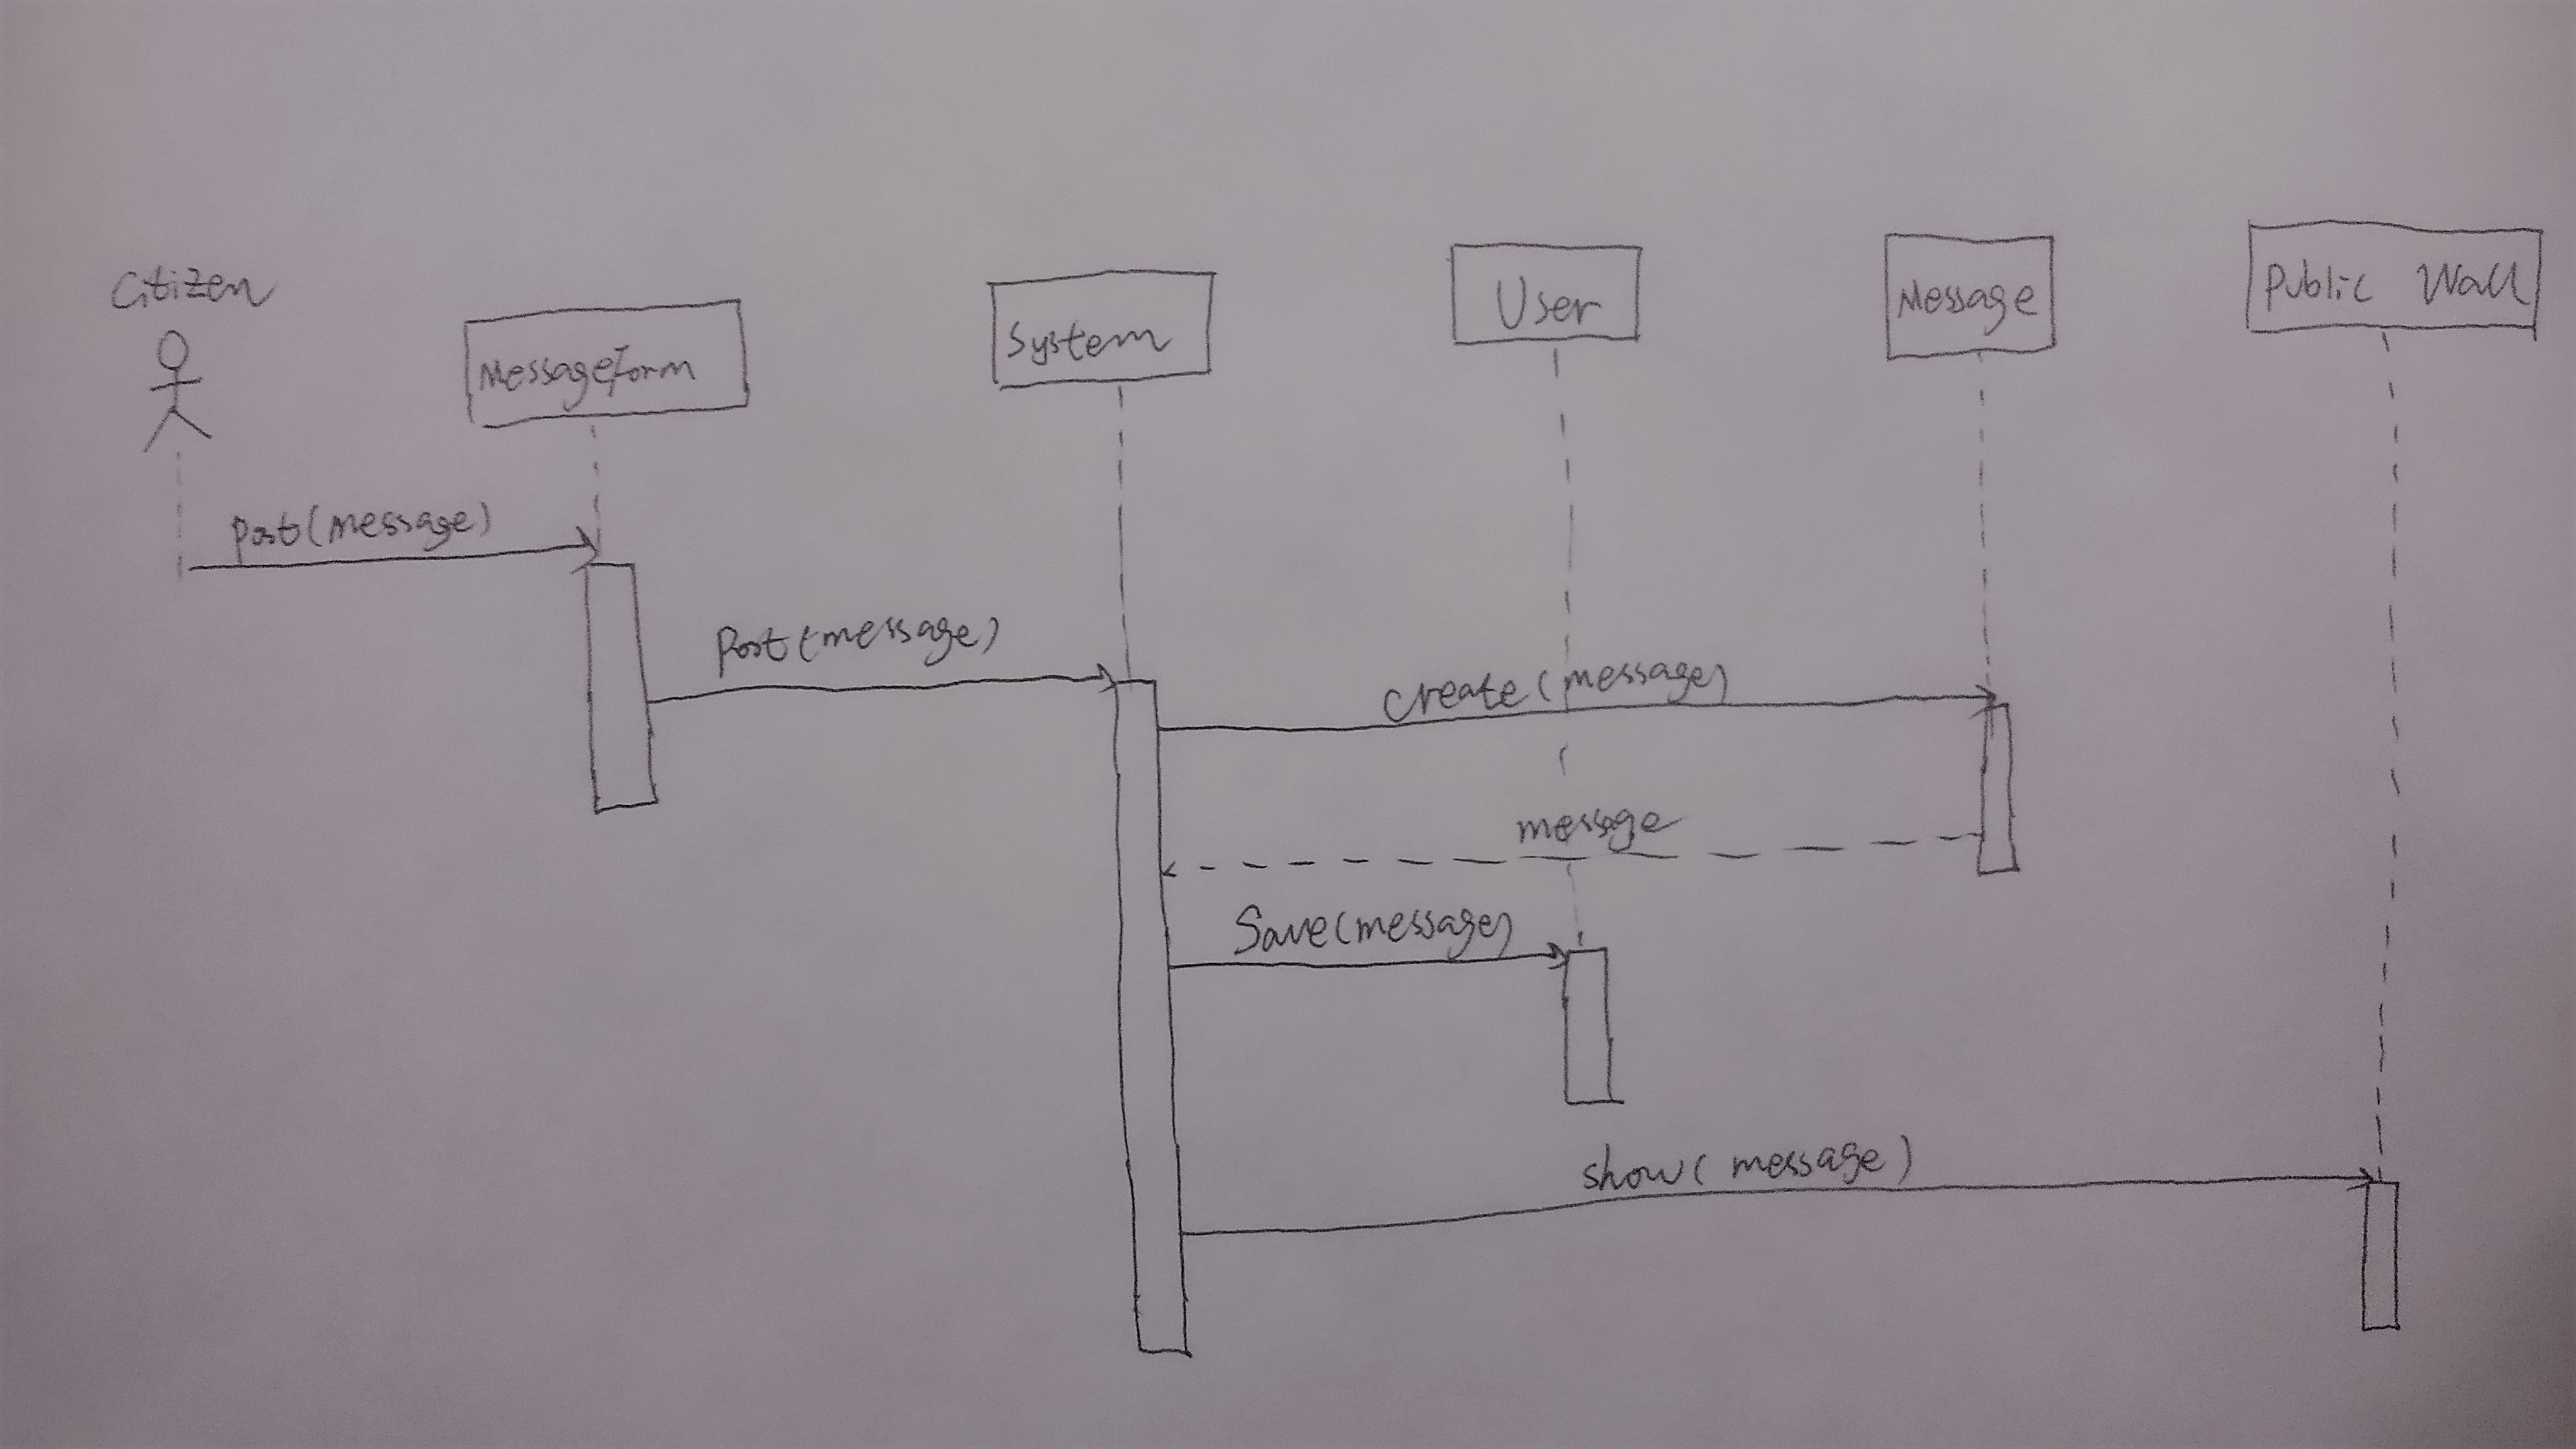 Citizen
MessageForm
System
User
Message
Public Wall
Post(message)
Post(message)
create(message)
message
Save(message)
show( message)